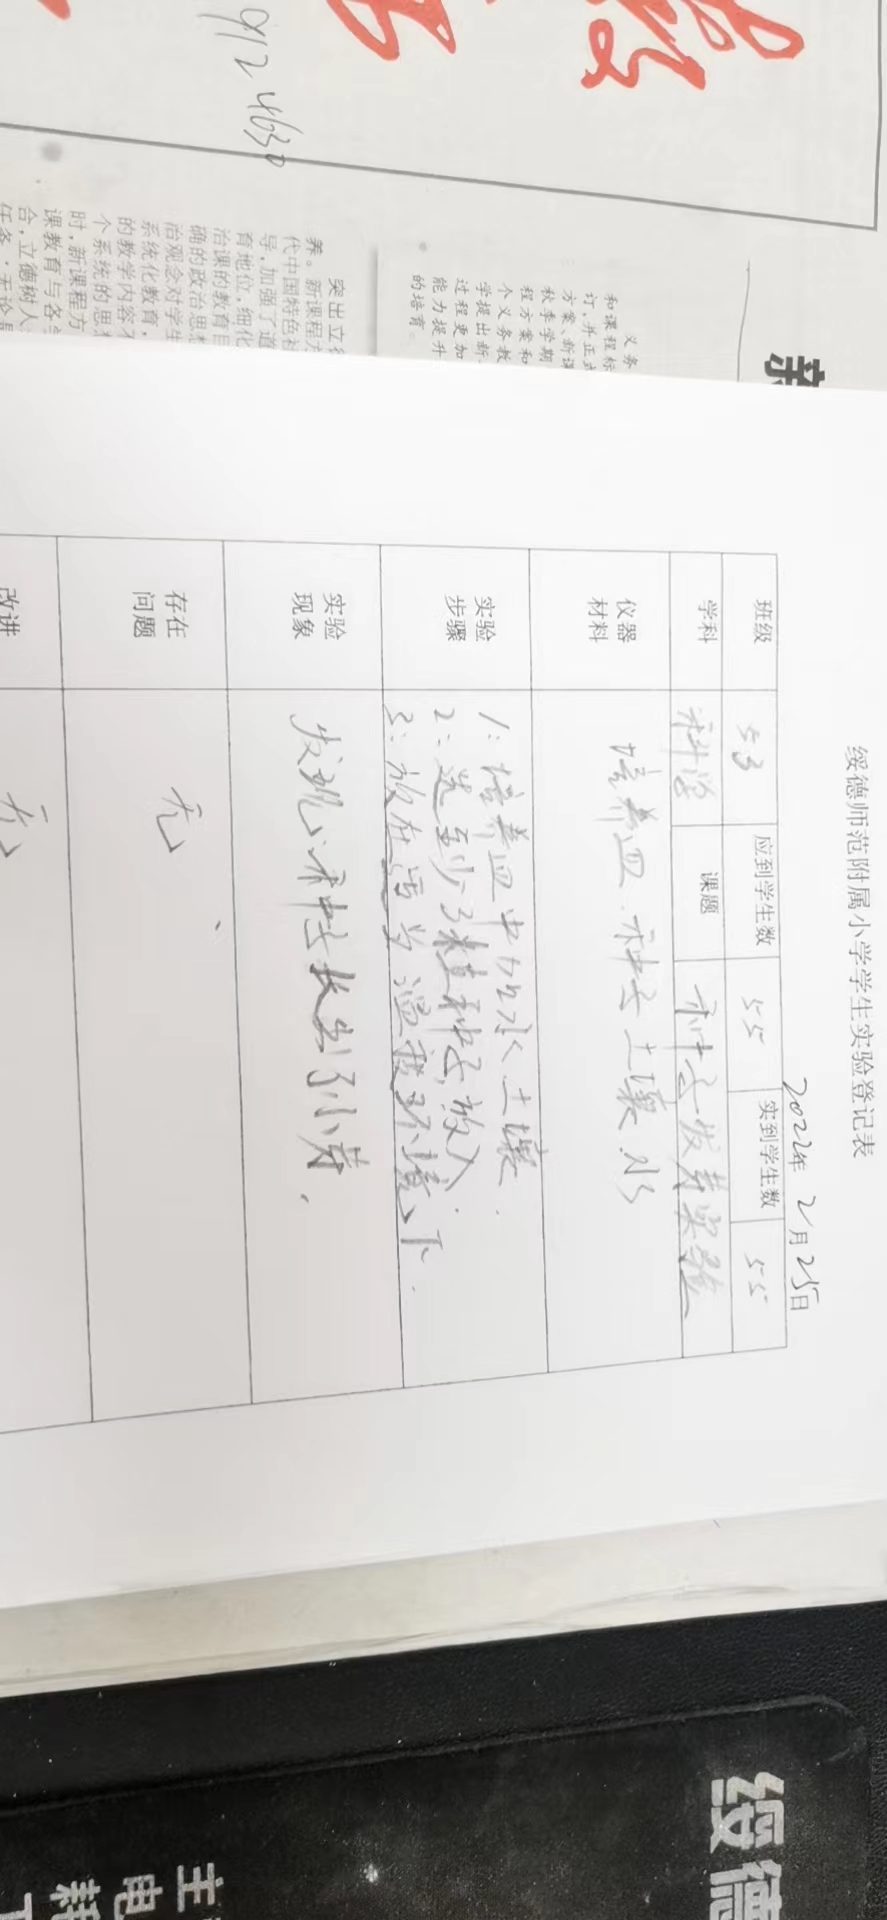 912 4630
义务
和课程标
订,并正式
方案、新课
秋季学期
程方案和
个义务教
学提出新
过程更加
能力提升
的培育。
突出立德
养。新课程方
代中国特色社
导,加强了道
育地位,细化
治课的教育目
确的政治思想
治观念对学生
系统化教育,
的教学内容不
个系统的思想
时,新课程方
课教育与各学
合,立德树人
任务,无论是
绥德师范附属小学学生实验登记表
2022年 2月25日
班级 53 应到学生数 55 实到学生数 55
学科 科学 课题 种子发芽实验
仪器
材料
培养皿.种子土壤水
实验
步骤
1:培养皿中加水土壤.
2:选至少3粒种子,放入.
3:放在适当温度环境下.
实验
现象
发现:种子长出了小芽.
存在
问题
无、
改进
无
绥德
主电